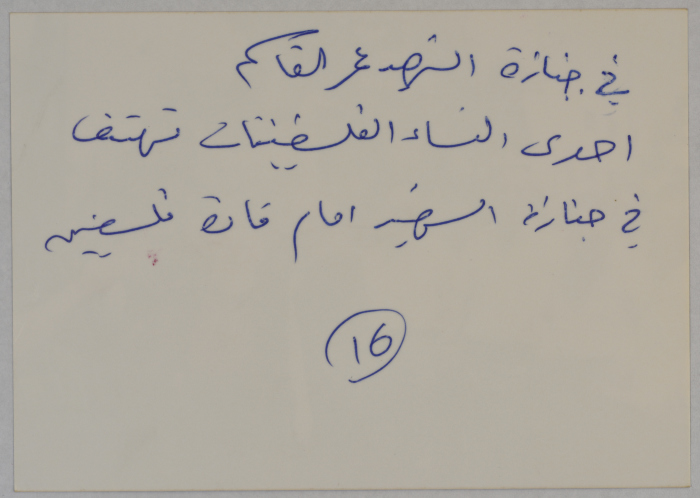 في جنازة الشهيد عمر القاسم
احدى النساء الفلسطينيات تهتف
في جنازة الشهيد امام قادة فلسطين
16